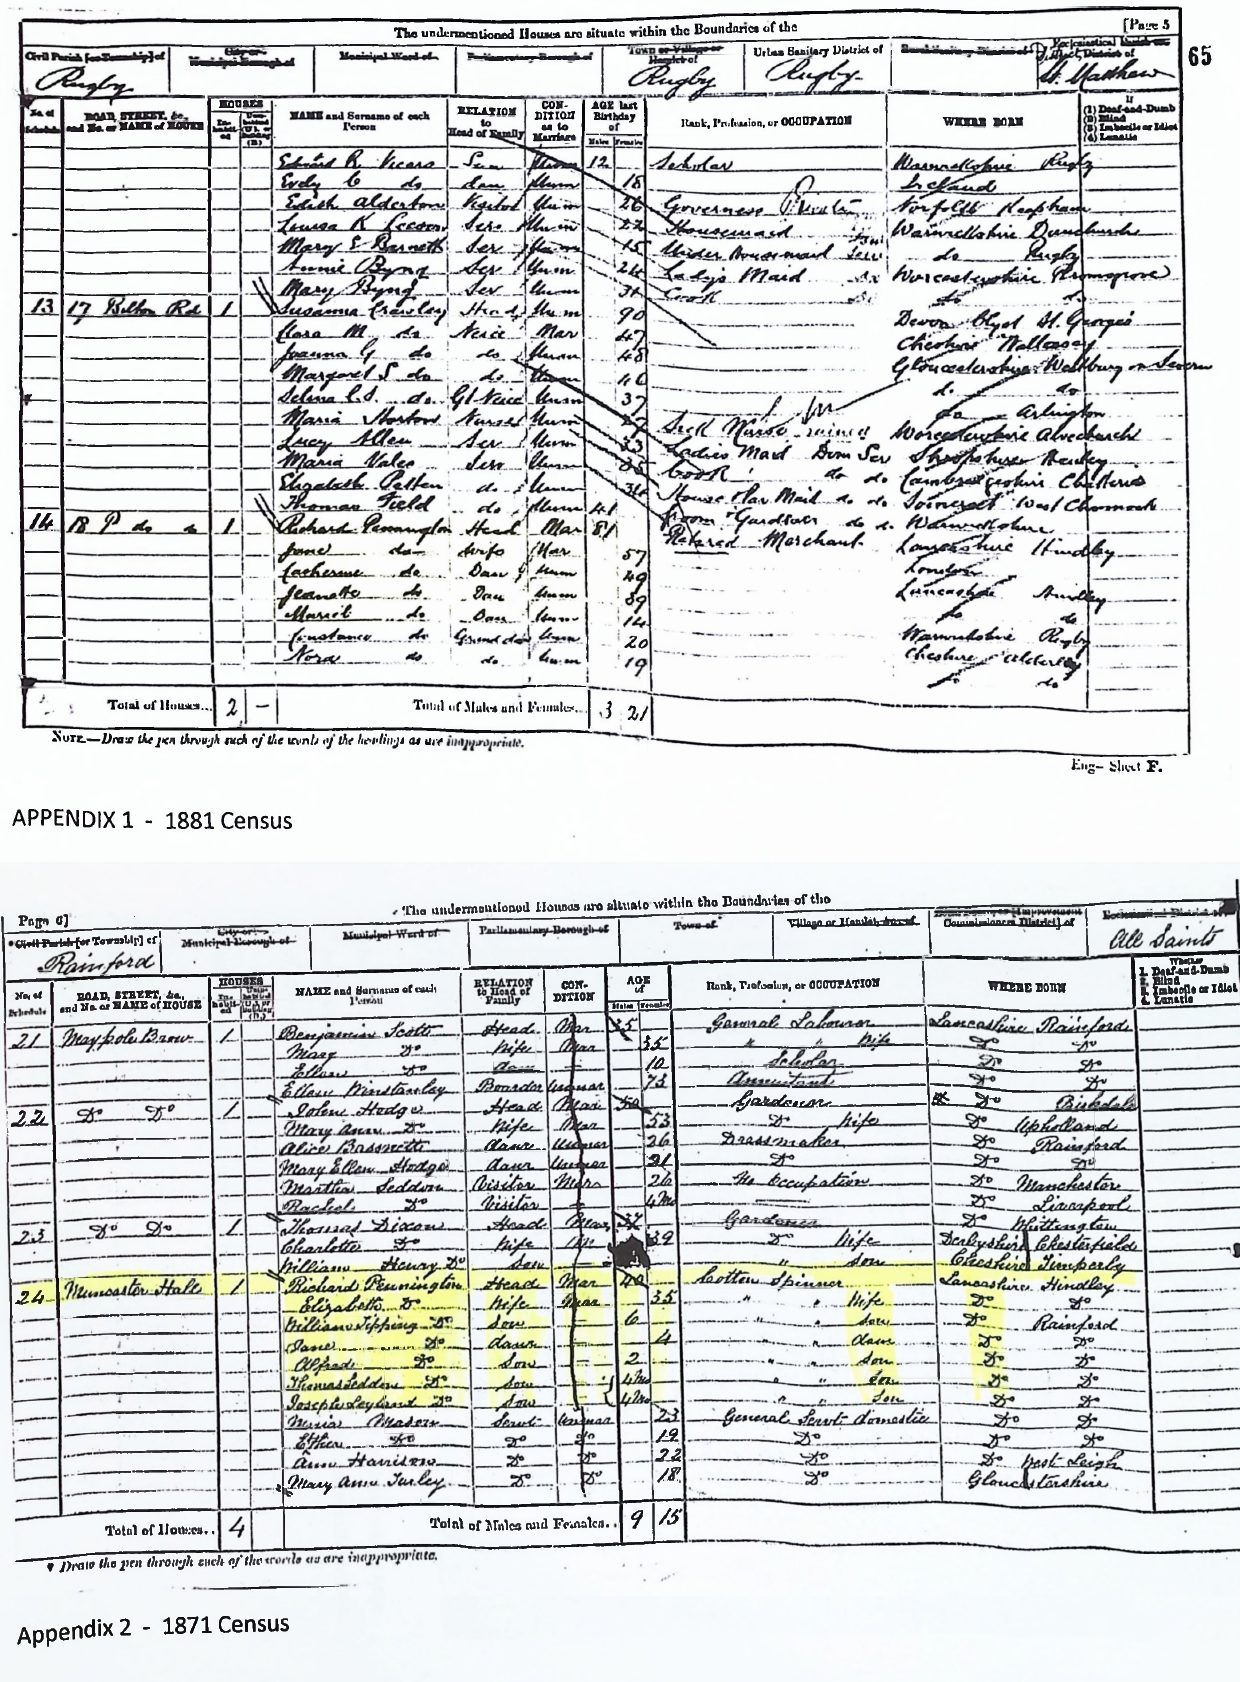 The undermentioned Houses are situate within the Boundaries of the [Page 5
65
Civil Parish [or Township] of City or Municipal Borough of Municipal Ward of Parliamentary Borough of Town or Village or Hamlet of Urban Sanitary District of Rural Sanitary District of Ecclesiastical Parish or District of
Rugby Rugby Rugby St. Matthew
No. of Schedule ROAD, STREET, &c., and No. or NAME of HOUSE HOUSES Inhabited Uninhabited (U.), or Building (B.) NAME and Surname of each Person RELATION to Head of Family CONDITION as to Marriage AGE last Birthday of Males Females Rank, Profession, or OCCUPATION WHERE BORN If (1) Deaf-and-Dumb (2) Blind (3) Imbecile or Idiot (4) Lunatic
Edward R. Vicars Son Unm 12 Scholar Warwickshire Rugby
Evely C do dau Unm 18 Ireland
Edith Alderton Visitor Unm 26 Governess Norfolk Reepham
Louisa K Leeson Serv Unm 22 Housemaid Warwickshire Dunchurch
Mary E Barnett Ser 15 Under Housemaid do Rugby
Annie Byng Ser Unm 24 Ladys Maid Worcestershire Bromsgrove
Mary Byng Ser Unm 31 Cook do do
13 17 Bilton Rd 1 Susanna Crawley Head Unm 90 Devon Clyst St. Georges
Clara M do Neice Mar 47 Cheshire Wallasey
Joanna G do do Unm 48 Gloucestershire Westbury on Severn
Margaret S do do Unm do do
Selina C.S. do Gt Neice Unm 37 do Arlington
Maria Horton Nurse Unm Sick Nurse Worcestershire Alvechurch
Lucy Allen Ser Unm 33 Ladies Maid Dom Ser Shropshire
Maria Vales Serv Unm Cook do do Cambridgeshire Chatteris
Elizabeth do Unm House Par Maid do do Somerset West
Thomas Field do Unm 41 Groom Gardner do do Warwickshire
14 18 do do 1 Richard Pennington Head Mar 81 Retired Merchant Lancashire Hindley
Jane do Wife Mar 57 London
Catherine do Dau Unm 49 Lancashire Hindley
Jeanette do Dau Unm 39 do do
Muriel do Dau Unm 14 Warwickshire Rugby
Constance do Grand dau Unm 20 Cheshire Alderley
Nora do do Unm 19 do do
Total of Houses... 2 — Total of Males and Females... 3 21
NOTE.—Draw the pen through such of the words of the headings as are inappropriate.
Eng— Sheet F.
APPENDIX 1 - 1881 Census
Page 6] The undermentioned Houses are situate within the Boundaries of the
Civil Parish [or Township] of City or Municipal Borough of Municipal Ward of Parliamentary Borough of Town of Village or Hamlet, &c. of Local Board, or [Improvement Commissioners District] of Ecclesiastical District of
Rainford All Saints
No. of Schedule ROAD, STREET, &c., and No. or NAME of HOUSE HOUSES NAME and Surname of each Person RELATION to Head of Family CONDITION AGE of Males Females Rank, Profession, or OCCUPATION WHERE BORN Whether 1. Deaf-and-Dumb 2. Blind 3. Imbecile or Idiot 4. Lunatic
21 Maypole Brow 1 Benjamin Scott Head Mar 35 General Labourer Lancashire Rainford
Mary Do Wife Mar 35 " " Wife Do Do
Ellen Do daur 10 Scholar Do Do
Ellen Winstanley Boarder Unmar 73 Annuitant Do Do
22 Do Do 1 John Hodge Head Mar Gardener Do Birkdale
Mary Ann Do Wife Mar 53 Do Wife Do Upholland
Alice Bassnette daur Unmar 26 Dressmaker Do Rainford
Mary Ellen Hodge daur Unmar 21 Do Do Do
Martha Seddon Visitor Mar 26 No Occupation Do Manchester
Rachel Do Visitor 4Mo Do Liverpool
23 Do Do 1 Thomas Dixon Head Mar 37 Gardener Do Whittington
Charlotte Do Wife 39 Do Wife Derbyshire Chesterfield
William Henry Do Son " Son Cheshire Timperly
24 Muncaster Hall 1 Richard Pennington Head Mar 40 Cotton Spinner Lancashire Hindley
Elizabeth Do Wife Mar 35 " " Wife Do Do
William Tipping Do Son 6 " " Son Do Rainford
Jane Do daur 4 " " daur Do Do
Alfred Do Son 2 " " Son Do Do
Thomas Seddon Do Son 4Mo " " Son Do Do
Joseph Leyland Do Son 4Mo " " Son Do Do
Maria Mason Servt Unmar 23 General Servt domestic Do Do
Esther Do Do Do 19 Do Do Do
Ann Harrison Do Do 22 Do Do West Leigh
Mary Ann Turley Do Do 18 Do Gloucestershire
Total of Houses.. 4 Total of Males and Females.. 9 15
* Draw the pen through such of the words as are inappropriate.
Appendix 2 - 1871 Census